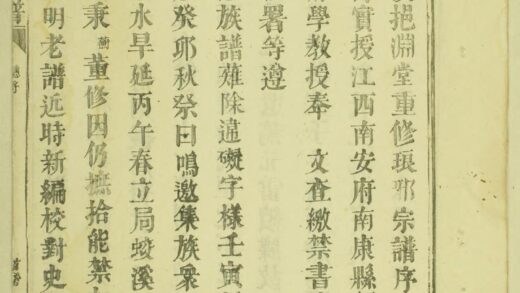 挹淵堂重修琅邪宗譜序
實授江西南安府南康縣
學教授奉　文查繳禁書
署等遵
族譜薙除違礙字樣壬寅
癸卯秋祭日鳴邀集族衆
水旱延丙午春立局蛟溪
秉　董修因仍撫拾能禁
明老譜近時新編校對史
總序